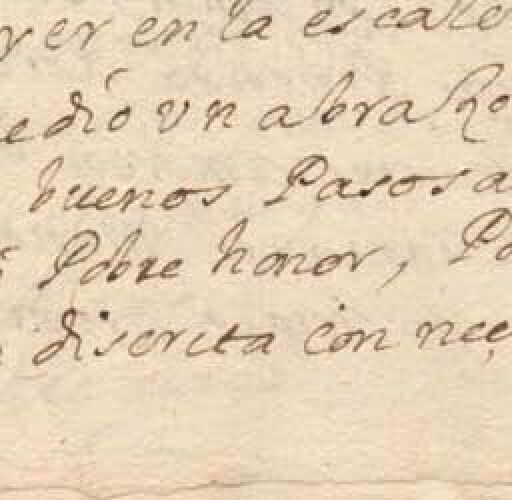 yer en la escale
edio vn abraso
buenos Pasos a
Pobre honor, Po
discreta con nec